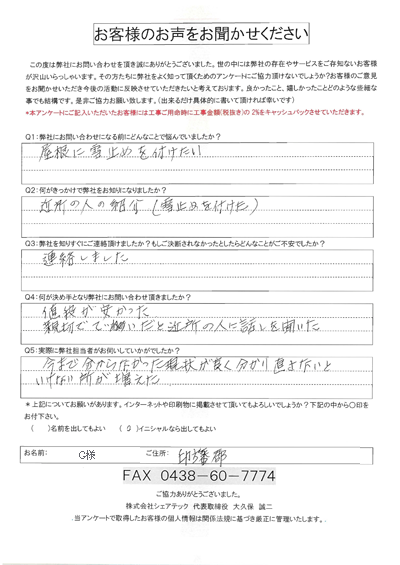 お客様のお声をお聞かせください
この度は弊社にお問い合わせを頂き誠にありがとうございました。世の中には弊社の存在やサービスをご存知ないお客様
が沢山いらっしゃいます。その方たちに弊社をよく知って頂くためのアンケートにご協力頂けないでしょうか?お客様のご意見
をお聞かせいただき今後の活動に反映させていただきたいと考えております。良かったこと、嬉しかったことどのような些細な
事でも結構です。是非ご協力お願い致します。(出来るだけ具体的に書いて頂ければ幸いです)
*本アンケートにご記入いただいたお客様には工事ご用命時に工事金額(税抜き)の2%をキャッシュバックさせていただきます。
Q1:弊社にお問い合わせになる前にどんなことで悩んでいましたか?
屋根に雪止めを付けたい
Q2:何がきっかけで弊社をお知りになりましたか?
近所の人の紹介(雪止めを付けた)
Q3:弊社を知りすぐにご連絡頂けましたか?もしご決断されなかったとしたらどんなことがご不安でしたか?
連絡しました
Q4:何が決め手となり弊社にお問い合わせ頂きましたか?
値段が安かった
親切でていねいだと近所の人に話しを聞いた
Q5:実際に弊社担当者がお伺いしていかがでしたか?
今まで分からなかった現状が良く分かり直さないと
いけない所が増えた
*上記についてお願いがあります。インターネットや印刷物に掲載させて頂いてもよろしいでしょうか?下記の中から○印を
お付下さい。
( )名前を出してもよい (○)イニシャルなら出してもよい
お名前: C様 ご住所: 印旛郡
FAX 0438-60-7774
ご協力ありがとうございました。
株式会社シェアテック 代表取締役 大久保 誠二
当アンケートで取得したお客様の個人情報は関係法規に基づき厳正に管理いたします。